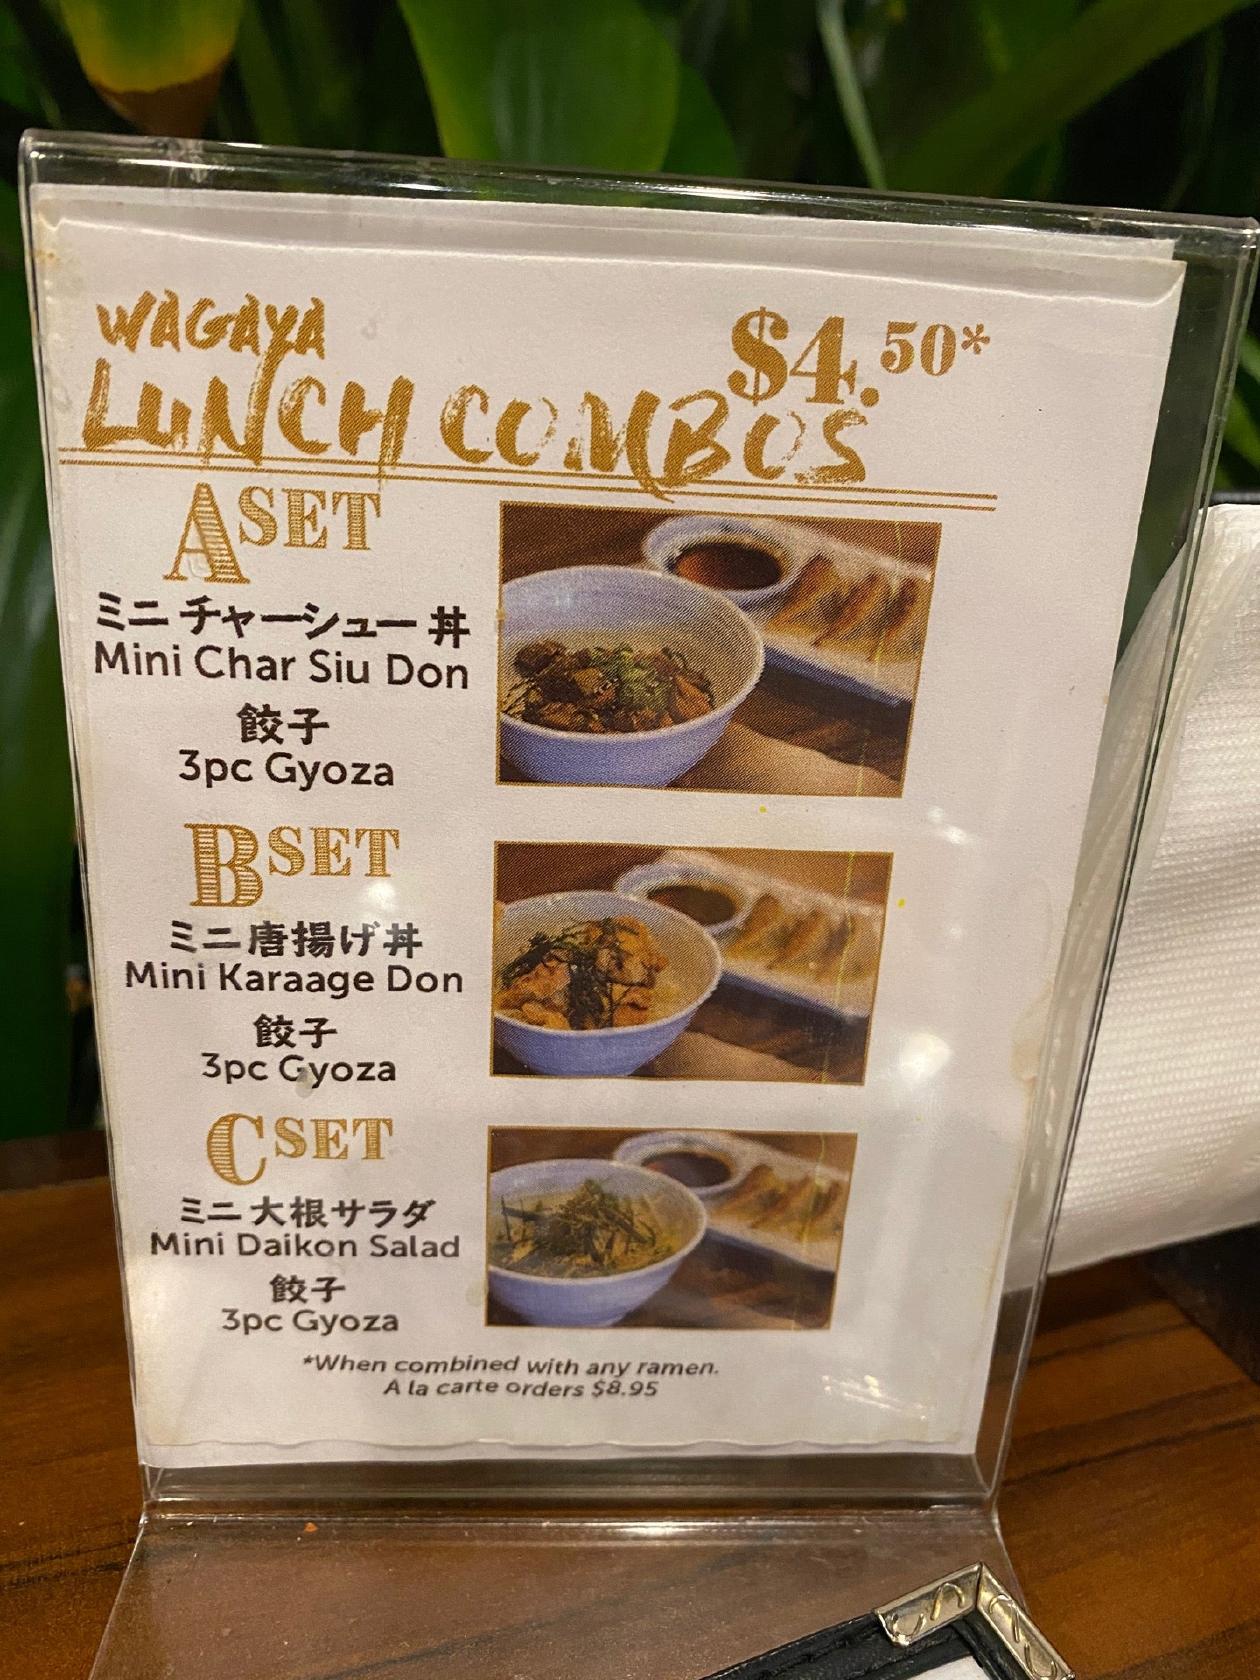 WAGAYA
LUNCH COMBOS
$4.50*
A SET
ミニ チャーシュー 丼
Mini Char Siu Don
餃子
3pc Gyoza
B SET
ミニ唐揚げ丼
Mini Karaage Don
餃子
3pc Gyoza
C SET
ミニ大根サラダ
Mini Daikon Salad
餃子
3pc Gyoza
*When combined with any ramen.
A la carte orders $8.95